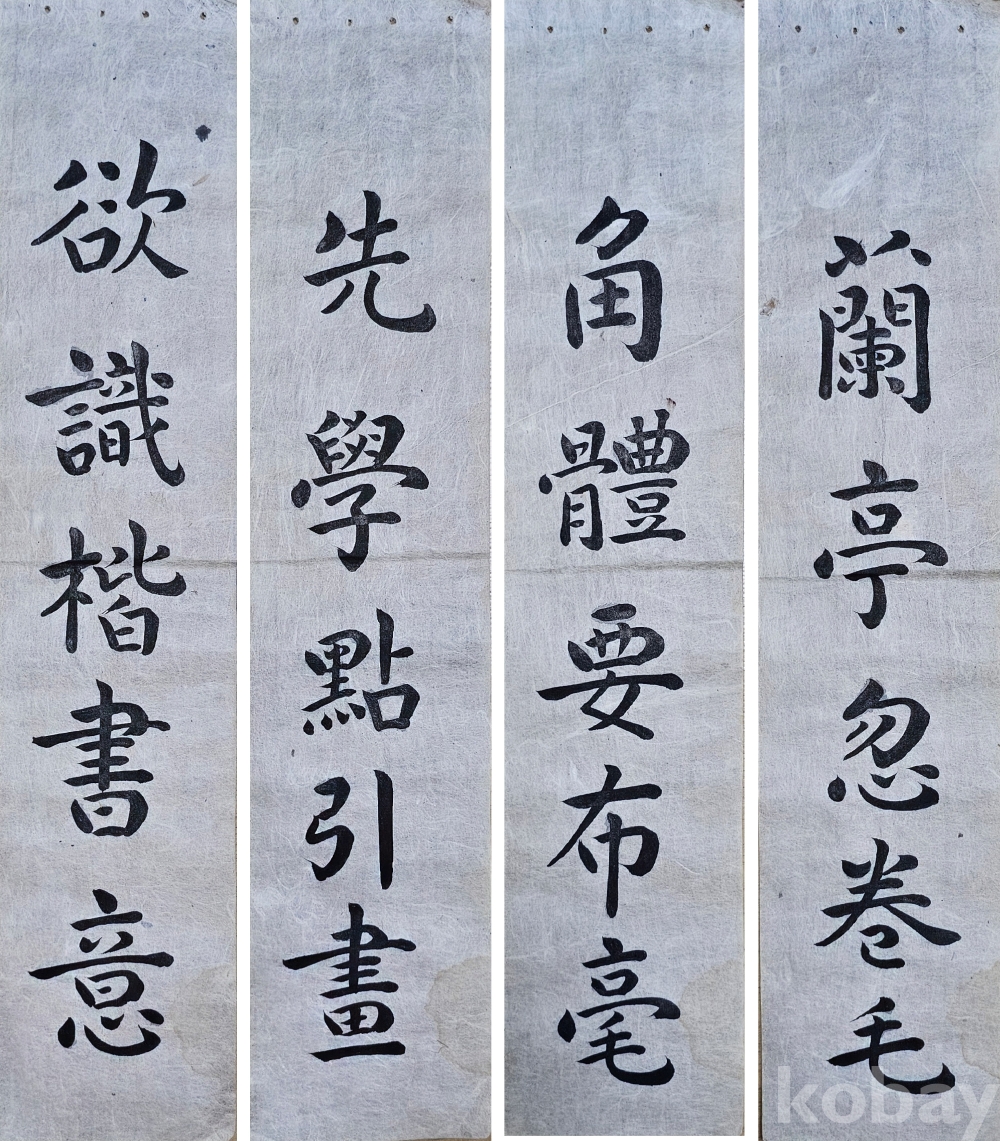 欲識楷書意
先學點引畫
角體要布毫
蘭亭忽卷毛
kobay